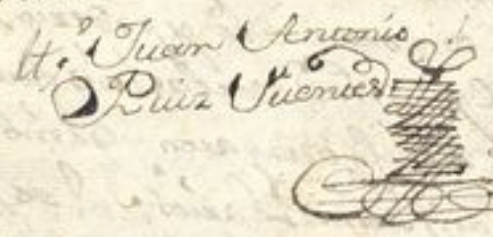 Juan Antonio
Ruiz Fuentes